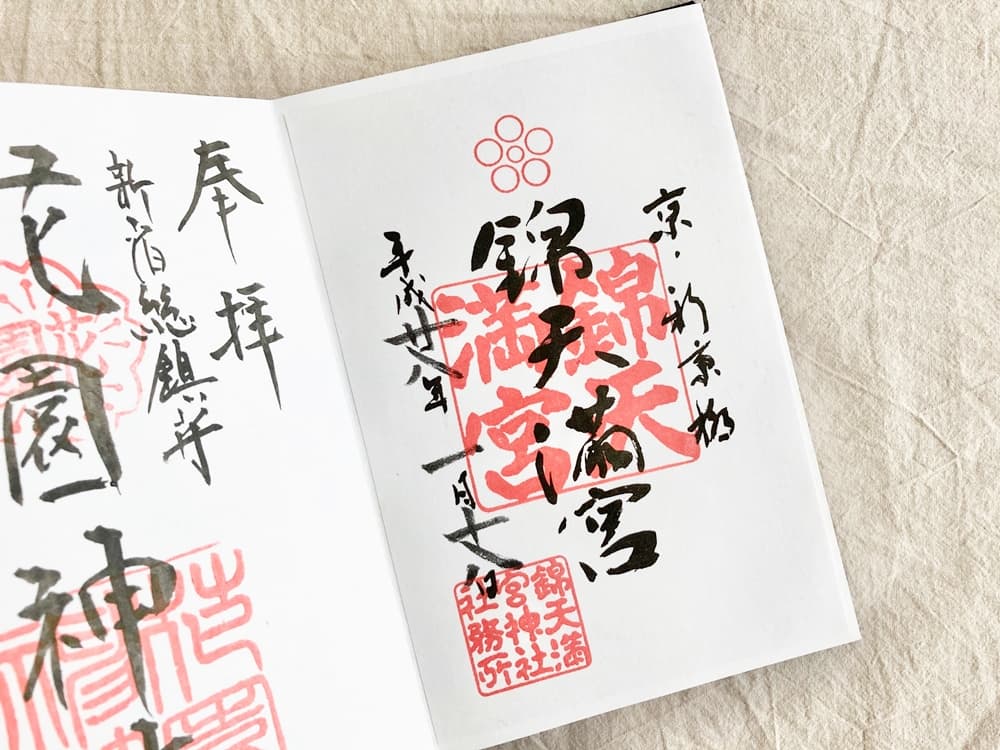 京・新京極
錦天満宮
錦天
満宮
平成廿八年 一月十八日
錦天満
宮神社
社務所
奉拝
新宿総鎮守
花園神